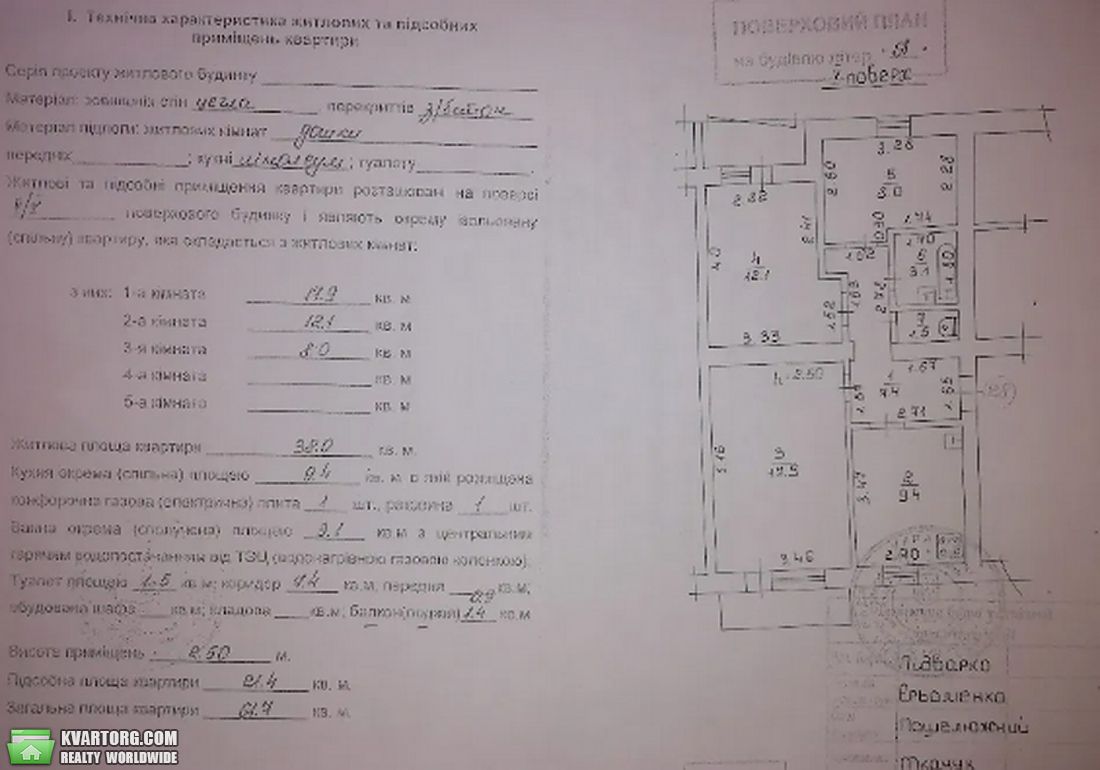 І. Технічна характеристика житлових та підсобних
приміщень квартири
Серія проекту житлового будинку
Матеріал: зовнішніх стін цегла перекриттів з/бетон
Матеріал підлоги: житлових кімнат дошки
передніх ; кухні лінолеум ; туалету
Житлові та підсобні приміщення квартири розташован на поверсі
поверхового будинку і являють окрему ізольовану
(спільну) квартиру, яка складається з житлових кімнат:
з них: 1-а кімната 17.9 кв. м
2-а кімната 12.1 кв. м
3-я кімната 8.0 кв. м
4-а кімната кв. м
5-а кімната кв. м
Житлова площа квартири 38.0 кв. м.
Кухня окрема (спільна) площею 9.4 кв. м в якій розміщена
конфорочна газова (електрична) плита 1 шт., раковина 1 шт.
Ванна окрема (сполучена) площею 3.1 кв.м з центральним
гарячим водопостачанням від ТЕЦ (водонагрівною газовою колонкою);
Туалет площею 1.5 кв.м; коридор 7.4 кв.м, передня кв.м;
вбудована шафа кв.м; кладова кв.м; балкон(лоджія) 1.4 кв.м
Висота приміщень 2.50 м.
Підсобна площа квартири 21.4 кв. м.
Загальна площа квартири 61.7 кв. м.
ПОВЕРХОВИЙ ПЛАН
на будівлю літер
поверх
3.28
2.60
5
8.0
2.28
2.32
2.41
0.90
1.74
4.0
4
12.1
1.02
1.70
6
3.1
1.80
1.63
2.72
1.52
7
1.5
3.33
h-2.50
1.67
1
7.4
1.55
2.71
5.18
3
17.9
3.47
2
9.4
3.46
2.70
Підварко
Єрьоменко
Ткачук
KVARTORG.COM
REALTY WORLDWIDE